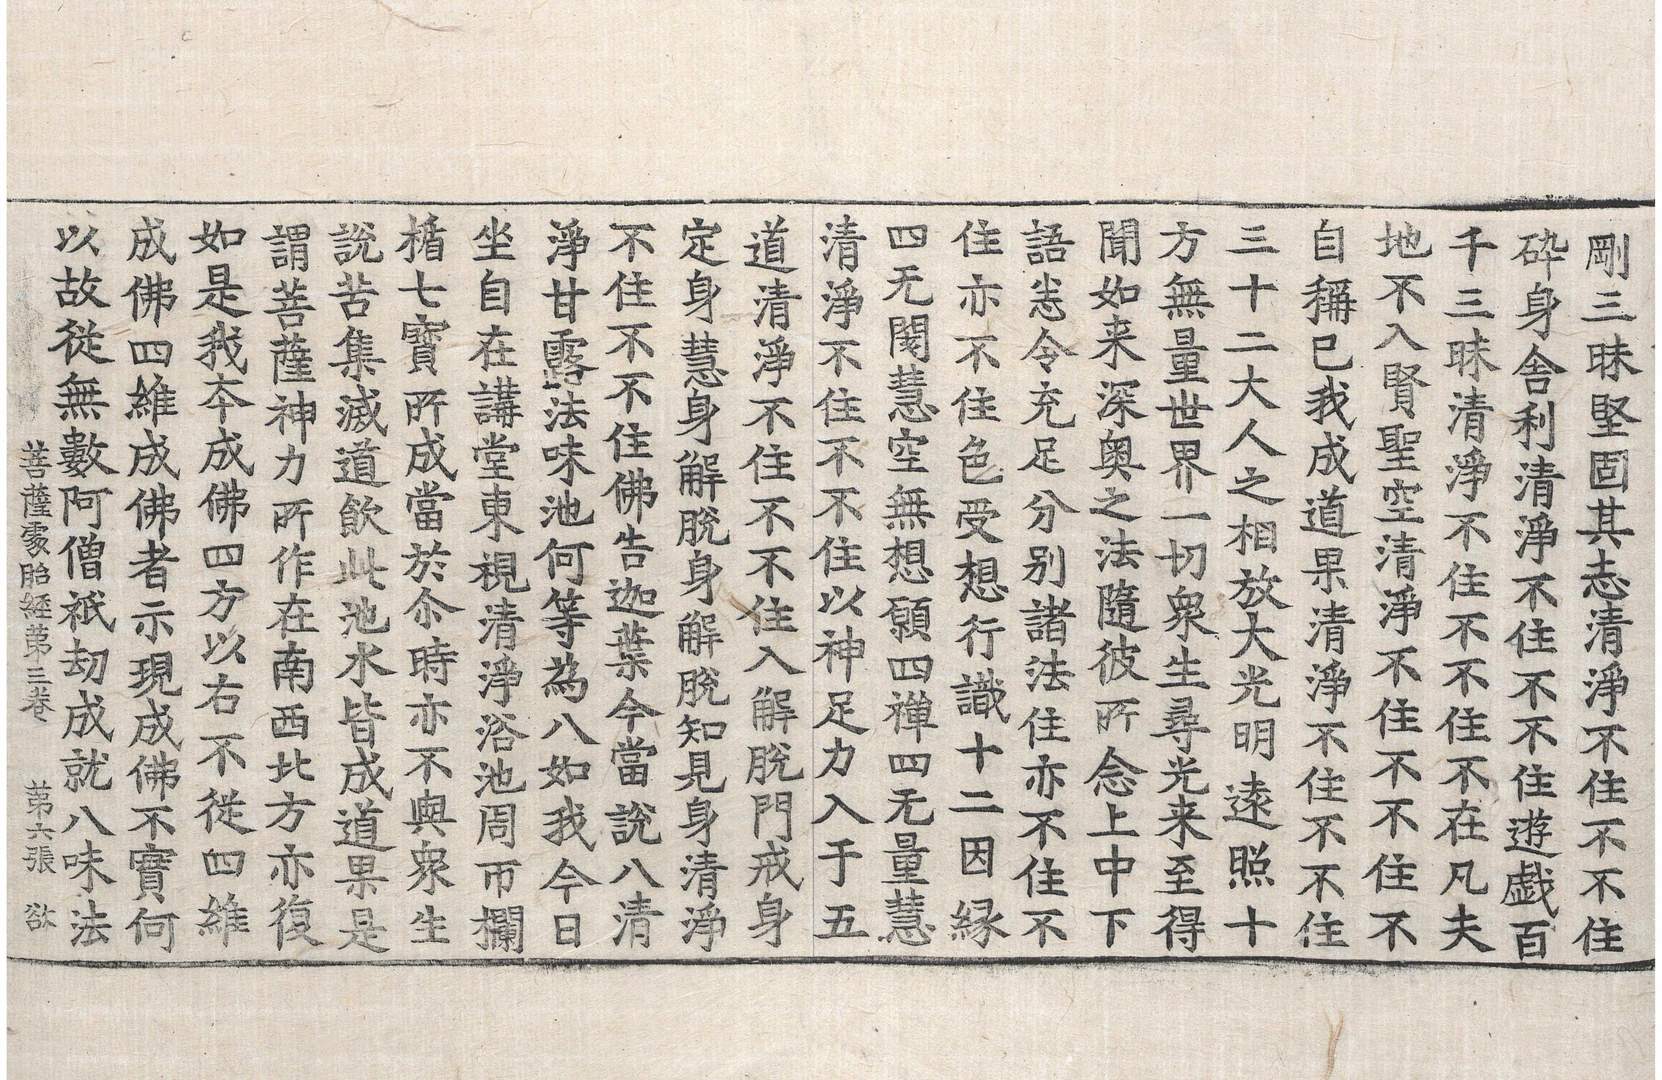 剛三昧堅固其志清淨不住不不住
碎身舍利清淨不住不不住遊戱百
千三昧清淨不住不不住不在凡夫
地不入賢聖空清淨不住不不住不
自稱已我成道果清淨不住不不住
三十二大人之相放大光明遠照十
方無量世界一切衆生尋光来至得
聞如来深奥之法隨彼所念上中下
語悉令充足分别諸法住亦不住不
住亦不住色受想行識十二因縁
四无閡慧空無想願四禅四无量慧
清淨不住不不住以神足力入于五
道清淨不住不不住入解脫門戒身
定身慧身解脫身解脫知見身清淨
不住不不住佛告迦葉今當說八清
淨甘露法味池何等為八如我今日
坐自在講堂東視清淨浴池周帀欄
楯七寶所成當於尒時亦不與衆生
說苦集滅道飲此池水皆成道果是
謂菩薩神力所作在南西北方亦復
如是我夲成佛四方以右不從四維
成佛四維成佛者示現成佛不實何
以故從無數阿僧祇劫成就八味法
菩薩處胎經苐三卷　苐六張　欲